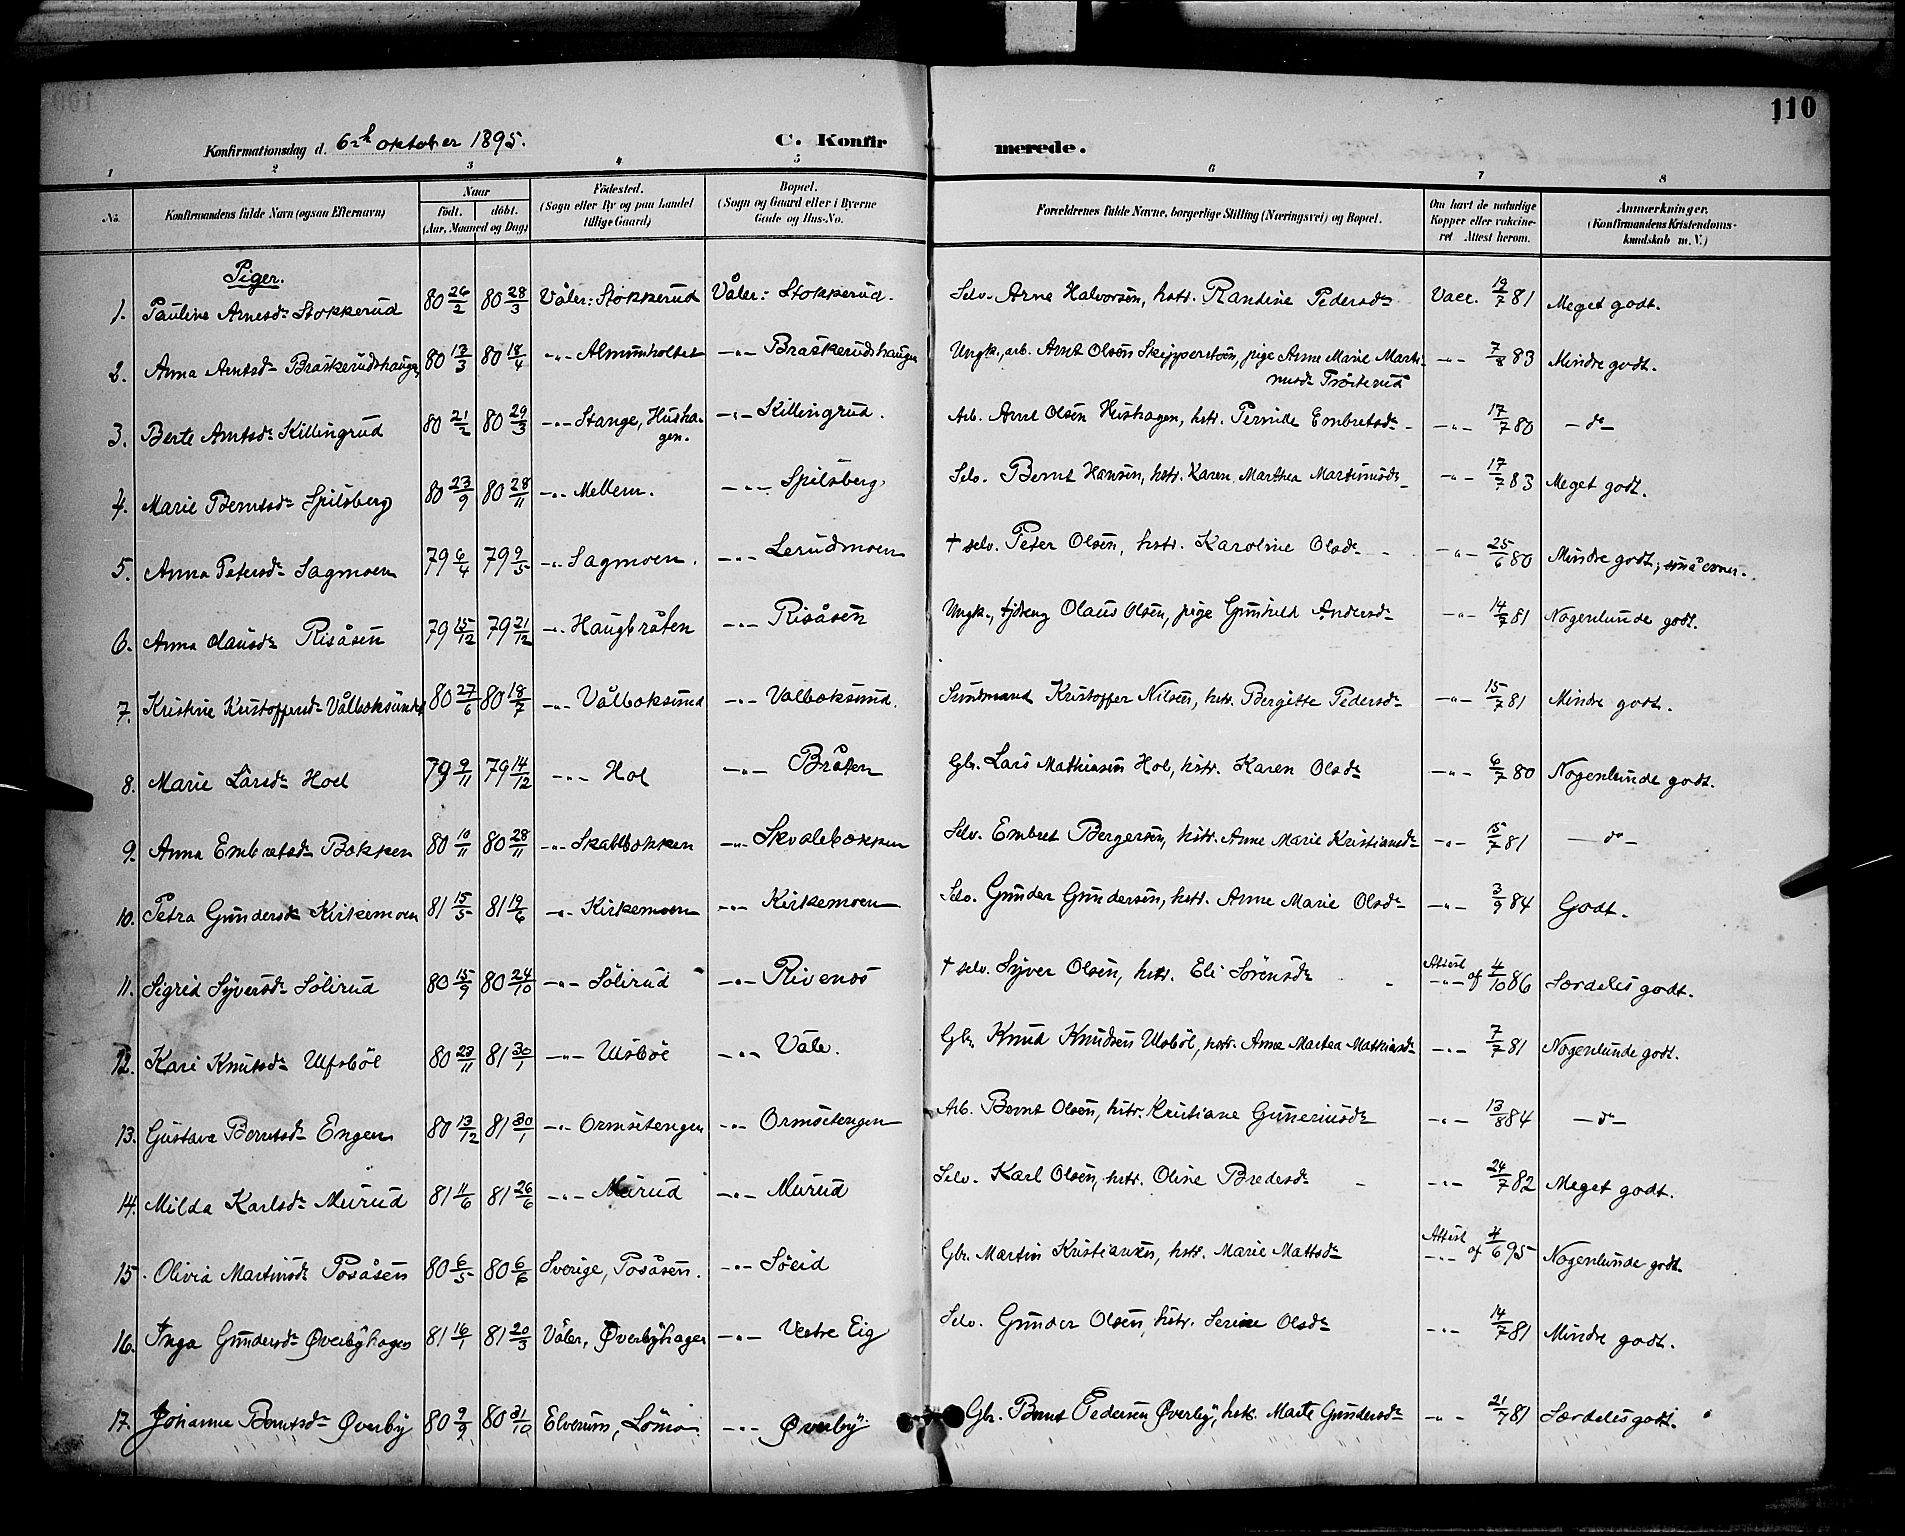 110
Konfirmationsdag d. 6th oktober 1895. C. Konfirmerede.
1 2 3 4 5 6 7 8
No. Konfirmandens fulde Navn (ogsaa Efternavn) Naar født. døbt. (Aar, Maaned og Dag) Fødested. (Sogn eller By og paa Landet tillige Gaard) Bopæl. (Sogn og Gaard eller i Byerne Gade og Hus-No. Forældrenes fulde Navne, borgerlige Stilling (Næringsvei) og Bopæl. Om havt de naturlige Kopper eller vaccineret Attest herom. Anmærkninger. (Konfirmandens Kristendomskundskab m. V.)
Piger.
1. Pauline Arnesdr Stokkerud 80 26/2 80 28/3 Våler: Stokkerud Våler: Stokkerud. Selv. Arne Halvorsen, hstr. Randine Pedersdr Vacc. 19/7 81 Meget godt.
2. Anna Arntsdr Braskerudshaugen 80 13/3 80 18/4 -"- Almunholtet -"- Braskerudshaugen Ungk., arb. Arnt Olsen Skipperstøen, pige Anne Marie Martinusdr Trøiterud -"- 7/8 83 Mindre godt.
3. Berte Arntsdr Killingrud 80 21/2 80 29/3 -"- Stange, Hushagen. -"- Killingrud. Arb. Arnt Olsen Hushagen, hstr. Pernille Embretsdr -"- 17/7 80 - do -
4. Marie Berntsdr Spilsberg 80 23/9 80 28/11 -"- Mellem. -"- Spilsberg Selv. Bernt Hansen, hstr. Karen Marthea Martinusdr -"- 17/7 83 Meget godt.
5. Anna Petersdr Sagmoen 79 6/4 79 9/5 -"- Sagmoen. -"- Lerudmoen † selv. Peter Olsen, hstr. Karoline Olsdr -"- 25/6 80 Mindre godt; små evner.
6. Anna Olausdr Risåsen 79 15/12 79 21/12 -"- Haugbråten -"- Risåsen Ungk., tjdreng Olaus Olsen, pige Gunhild Andersdr -"- 14/7 81 Nogenlunde godt.
7. Kristine Kristoffersdr Vålboksund 80 27/6 80 18/7 -"- Vålboksund -"- Valboksund. Sundmand Kristoffer Nilsen, hstr. Bergitte Pedersdr -"- 15/7 81 Mindre godt.
8. Marie Larsdr Hoel 79 9/11 79 14/12 -"- Hol -"- Bråten Gbr. Lars Mathiasen Hol, hstr. Karen Olsdr -"- 6/7 80 Nogenlunde godt.
9. Anna Embretsdr Bakken 80 10/11 80 28/11 -"- Skalbakken -"- Skvalebakken Selv. Embret Bergersen, hstr. Anne Marie Kristiansdr -"- 15/7 81 - do -
10. Petra Gundersdr Kirkemoen 81 15/5 81 19/6 -"- Kirkemoen -"- Kirkemoen Selv. Gunder Gundersen, hstr. Anne Marie Olsdr -"- 3/9 84 Godt.
11. Sigrid Syversdr Sölirud 80 15/9 80 24/10 -"- Sölirud -"- Rivenes † selv. Syver Olsen, hstr. Eli Sörensdr Attest -"- af 4/10 86 Særdeles godt.
12. Kari Knutsdr Ulfsböl 80 23/11 81 30/1 -"- Ulsböl -"- Våle. Gbr. Knud Knudsen Ulsböl, hstr. Anne Martea Mathiasdr -"- 7/7 81 Nogenlunde godt.
13. Gustava Berntsdr Engen 80 13/12 81 30/1 -"- Ormsetengen -"- Ormsetengen Arb. Bernt Olsen, hstr. Kristiane Guneriusdr -"- 13/8 84 - do -
14. Milda Karlsdr Murud 81 11/6 81 26/6 -"- Murud -"- Murud Selv. Karl Olsen, hstr. Oline Bredesdr -"- 24/7 82 Meget godt.
15. Olivia Martinsdr Posåsen 80 6/5 80 6/6 Sverige, Posåsen. -"- Söeid Gbr. Martin Kristiansen, hstr. Marie Mattsdr Attest -"- af 4/6 95 Nogenlunde godt.
16. Inga Gundersdr Øverbyhagen 81 16/1 81 20/3 Våler, Øverbyhagen -"- Vestre Eig Selv. Gunder Olsen, hstr. Serine Olsdr -"- 14/7 81 Mindre godt.
17. Johanne Berntsdr Øverby 80 9/9 80 31/10 Elverum, Lömo -"- Øverby Gbr. Bernt Pedersen Øverby, hstr. Marte Gundersdr -"- 21/7 81 Særdeles godt.